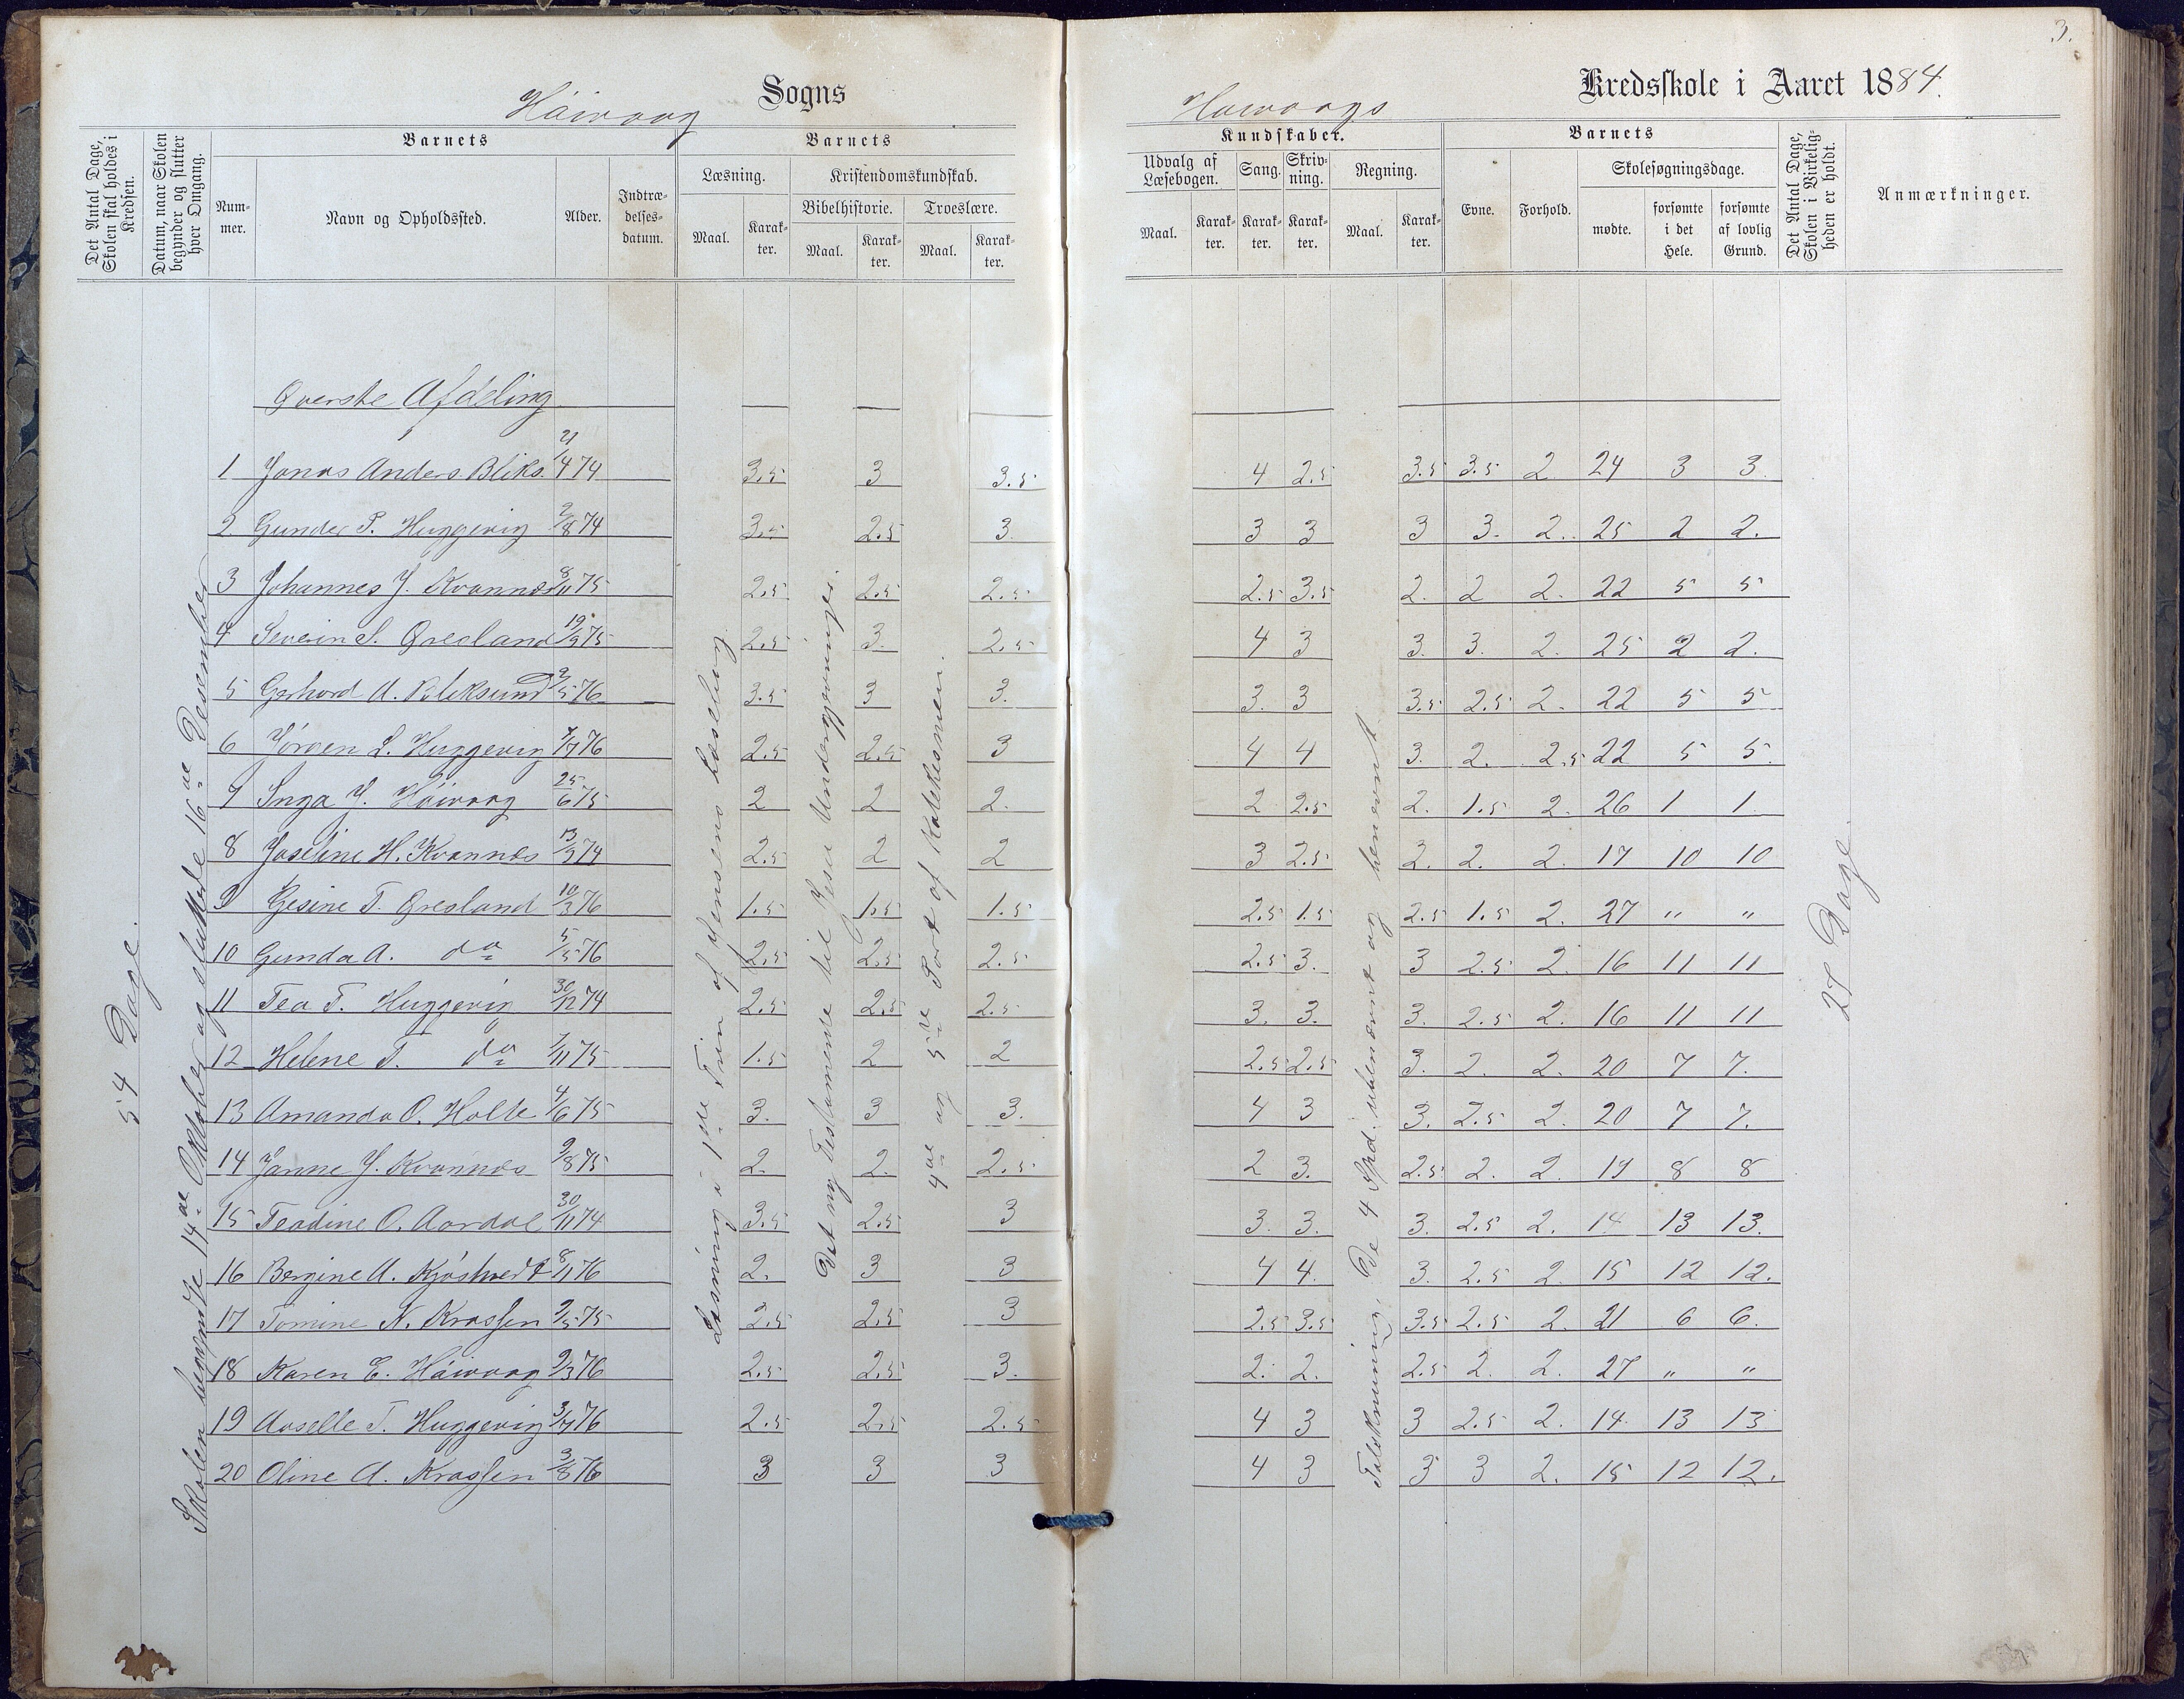 3.
Høivaag Sogns
Høivaags Kredsskole i Aaret 1884.
Det Antal Dage, Skolen skal holdes i Kredsen.
Datum, naar Skolen begynder og slutter hver Omgang.
Barnets
Nummer.
Navn og Opholdssted.
Alder.
Indtrædelsesdatum.
Barnets
Læsning.
Maal.
Karakter.
Kristendomskundskab.
Bibelhistorie.
Maal.
Karakter.
Troeslære.
Maal.
Karakter.
Kundskaber.
Udvalg af Læsebogen.
Maal.
Karakter.
Sang.
Karakter.
Skrivning.
Karakter.
Regning.
Maal.
Karakter.
Barnets
Evne.
Forhold.
Skolesøgningsdage.
mødte.
forsømte i det Hele.
forsømte af lovlig Grund.
Det Antal Dage, Skolen i Virkeligheden er holdt.
Anmærkninger.
54 Dage.
Skolen begyndte 14de Oktober og sluttede 16de Desember
Øverste Afdeling
Læsning i 1ste Trin af Jensens Læsebog
Det ny Testamente til Jesu Undergjerninger.
4de og 5te Part af Katekismen.
Talskrivning. De 4 Spd. ubenævnt og benævnt.
27 Dage.
1 Jonas Anders Bliks. 21/4 74 3.5 3 3.5 4 2.5 3.5 3.5 2 24 3 3
2 Gunder P. Huggevig 2/8 74 3.5 2.5 3 3 3 3 3. 2. 25 2 2.
3 Johannes J. Kvannes 8/11 75 2.5 2.5 2.5 2.5 3.5 2. 2 2. 22 5 5
4 Severin S. Øresland 19/9 75 2.5 3. 2.5 4 3 3. 3. 2. 25 2 2.
5 Gerhard A. Bliksund 2/5 76 3.5 3 3. 3. 3 3.5 2.5 2. 22 5 5
6 Jørgen L. Huggevig 7/7 76 2.5 2.5 3 4 4 3. 2. 2.5 22 5 5.
7 Inga J. Høivaag 25/6 75 2 2 2. 2 2.5 2. 1.5 2. 26 1 1
8 Joseline H. Kvannes 13/9 74 2.5 2 2 3 2.5 2. 2. 2. 17 10 10
9 Gesine T. Øresland 10/3 76 1.5 1.5 1.5 2.5 1.5 2.5 1.5 2. 27 " "
10 Gunda A. do 5/5 76 2.5 2.5 2.5 2.5 3. 3 2.5 2. 16 11 11
11 Tea T. Huggevig 30/12 74 2.5 2.5 2.5 3. 3. 3. 2.5 2. 16 11 11
12 Helene T. do 7/11 75 1.5 2 2 2.5 2.5 3. 2. 2. 20 7 7.
13 Amanda O. Holte 4/6 75 3. 3 3. 4 3 3. 2.5 2. 20 7 7.
14 Janne J. Kvannes 9/8 75 2. 2. 2.5 2 3. 2.5 2. 2. 19 8 8
15 Teadine O. Aardal 30/11 74 3.5 2.5 3 3. 3. 3. 2.5 2. 14 13 13.
16 Bergine A. Kjøstvedt 8/11 76 2. 3 3 4 4. 3. 2.5 2. 15 12 12.
17 Tomine N. Krassen 2/5 75 2.5 2.5 3 2.5 3.5 3.5 2.5 2. 21 6 6.
18 Karen E. Høivaag 9/3 76 2.5 2.5 3. 2. 2. 2.5 2. 2. 27 " "
19 Aaselle T. Huggevig 3/7 76 2.5 2.5 2.5 4 3 3 2.5 2. 14 13 13
20 Oline A. Krassen 3/8 76 3 3 3 4 3 3 3 2. 15 12 12.